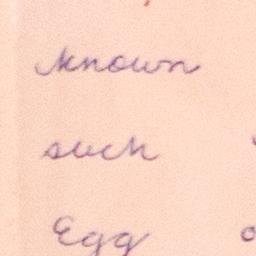 known
such
Egg